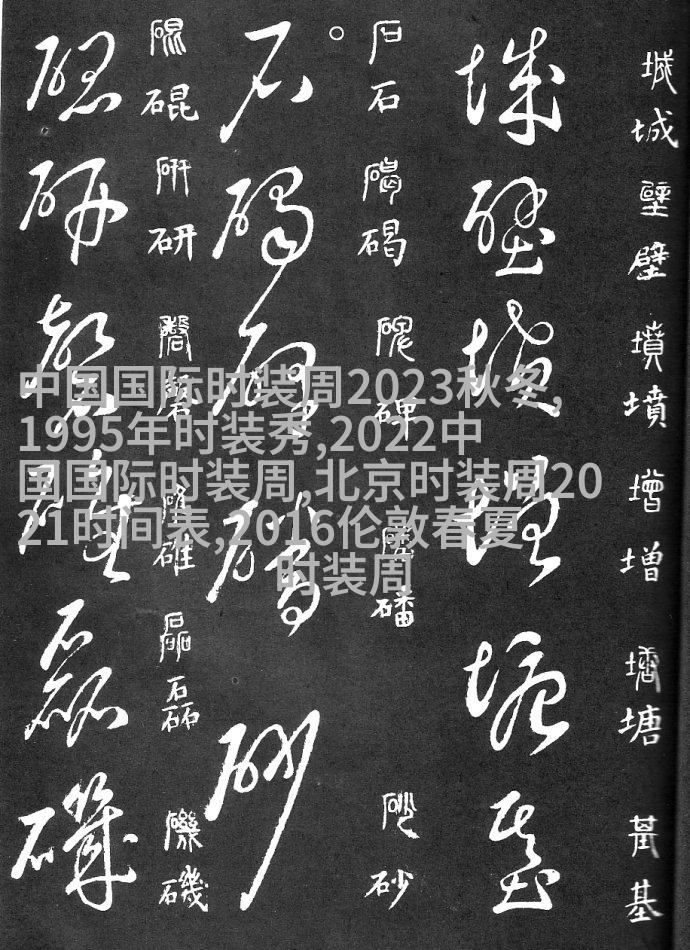 城
城
壁
壁
墳
墳
增
增
塘
塘
基
基
城
壁
墳
增
塘
基
石
石
碣
碣
碑
碑
磻
砂
砂
石
碣
碑
磻
砂
碾
硏
研
磬
磬
確
磊
磊
磯
磯
研
磬
確
磊
磯
中国国际时装周2023秋冬,
1995年时装秀,2022中
国国际时装周,北京时装周20
21时间表,2016伦敦春夏
时装周